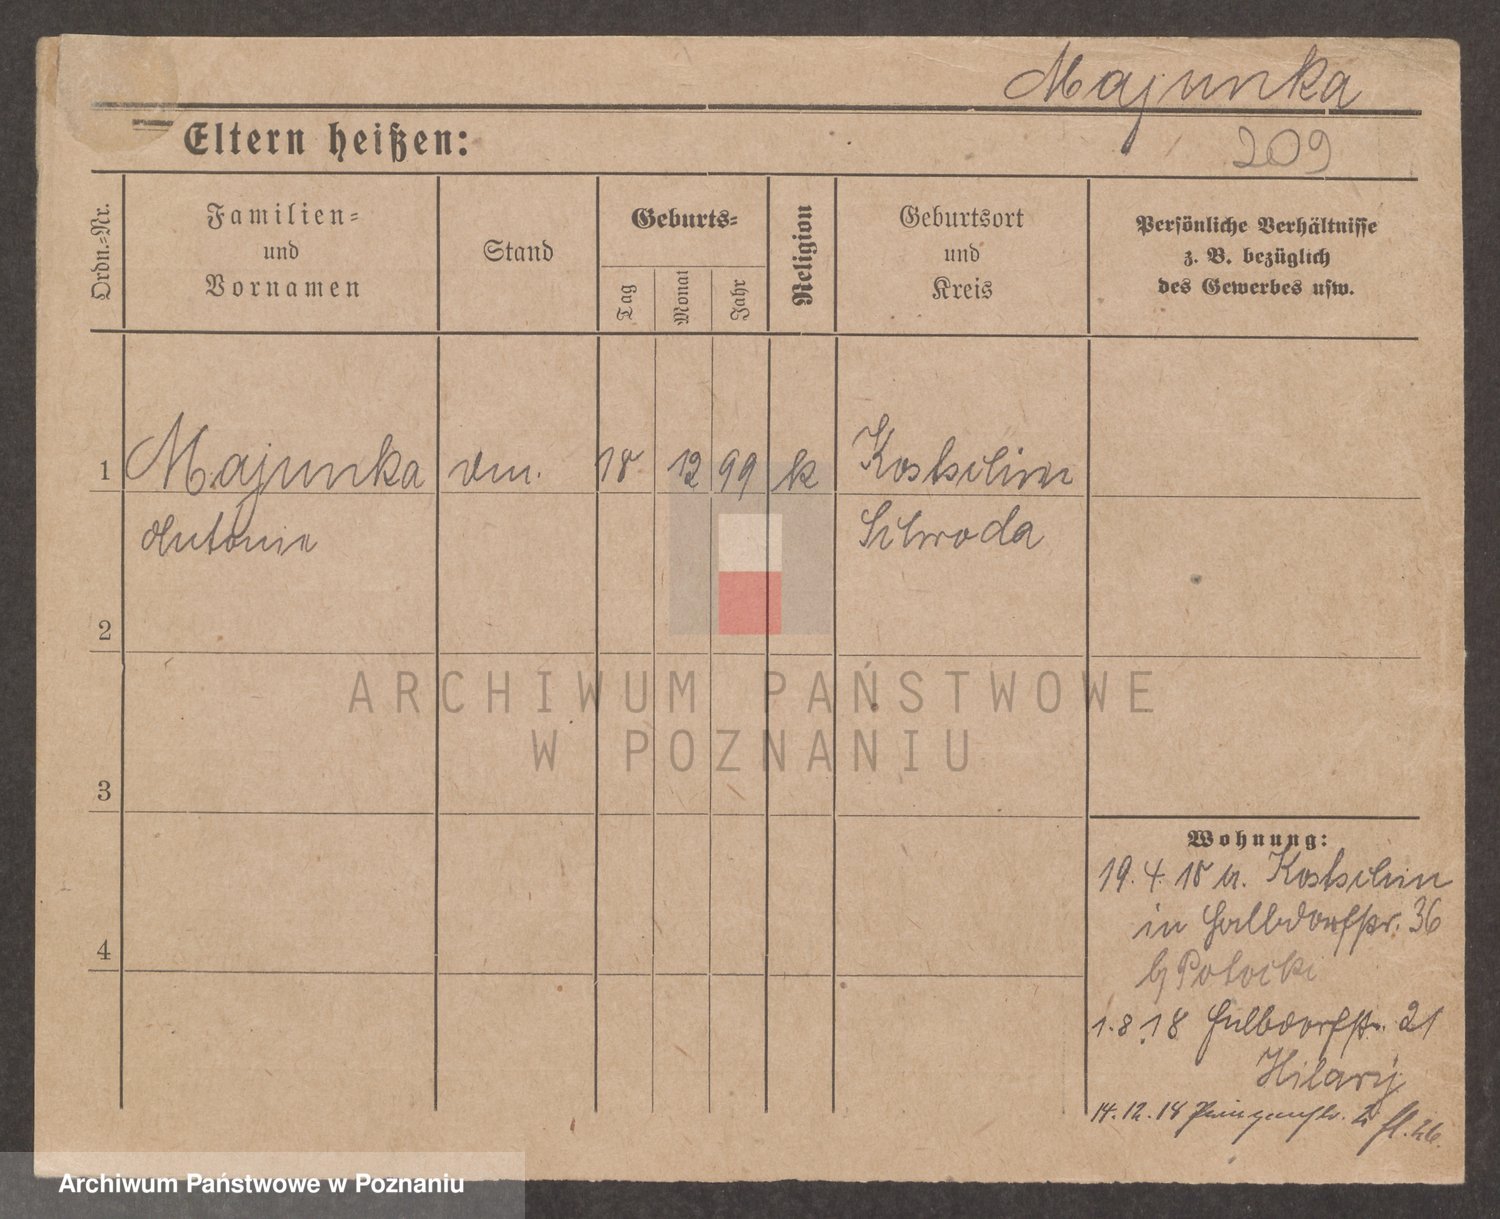 Majunka
209
Eltern heißen:
Ordn.=Nr.
Familien=
und
Vornamen
Stand
Geburts=
Tag
Monat
Jahr
Religion
Geburtsort
und
Kreis
Persönliche Verhältnisse
z. B. bezüglich
des Gewerbes usw.
1
Majunka
18
12
99
k
Kostschin
Antonie
Schroda
2
ARCHIWUM PAŃSTWOWE
W POZNANIU
3
Wohnung:
19. 4. 18 v. Kostschin
in Halbdorfstr. 36
b/ Potocki
4
1.8.18 Halbdorfstr. 21
Hilary
14. 12. 18
Archiwum Państwowe w Poznaniu